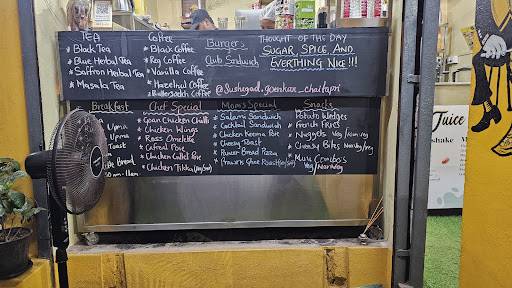 TEA
* Black Tea
* Blue Herbal Tea
* Saffron Herbal Tea
* Masala Tea
Coffee
* Black Coffee
* Reg Coffee
* Vanilla Coffee
* Hazelnut Coffee
* Butterscotch Coffee
Burgers
Club Sandwich
THOUGHT OF THE DAY
SUGAR, SPICE, AND
EVERTHING NICE!!!
@Sushegad.goenkar_chaitapri
Breakfast
Upma
Toast
Bread
Chef Special
* Goan Chicken Chilli
* Chicken Wings
* Ross Omelette
* Cafreal Poie
* Chicken Cutlet Poie
* Chicken Tikka
Mom's Special
* Salami Sandwich
* Cocktail Sandwich
* Chicken Keema Poie
* Cheesy Toast
* Bread Pizza
* Prawns Ghee Roast
Snacks
* Potato Wedges
* French Fries
* Nuggets Veg/Non veg
* Cheesy Bites Non Veg/veg
* Mini Combos
Veg/Nonveg
Juice
shake